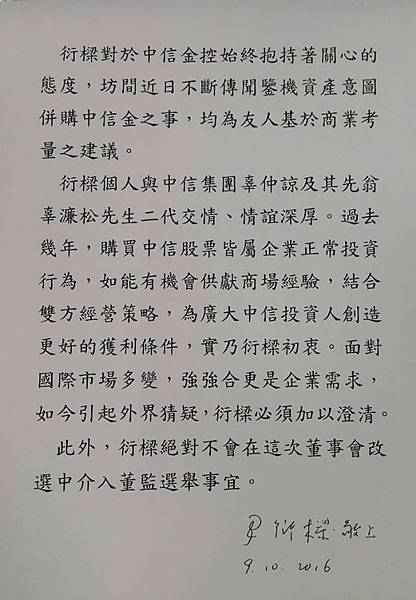 衍樑對於中信金控始終抱持著關心的
態度，坊間近日不斷傳聞鑒機資產意圖
併購中信金之事，均為友人基於商業考
量之建議。
衍樑個人與中信集團辜仲諒及其先翁
辜濂松先生二代交情、情誼深厚。過去
幾年，購買中信股票皆屬企業正常投資
行為，如能有機會供獻商場經驗，結合
雙方經營策略，為廣大中信投資人創造
更好的獲利條件，實乃衍樑初衷。面對
國際市場多變，強強合更是企業需求，
如今引起外界猜疑，衍樑必須加以澄清。
此外，衍樑絕對不會在這次董事會改
選中介入董監選舉事宜。
尹衍樑敬上
9.10.2016